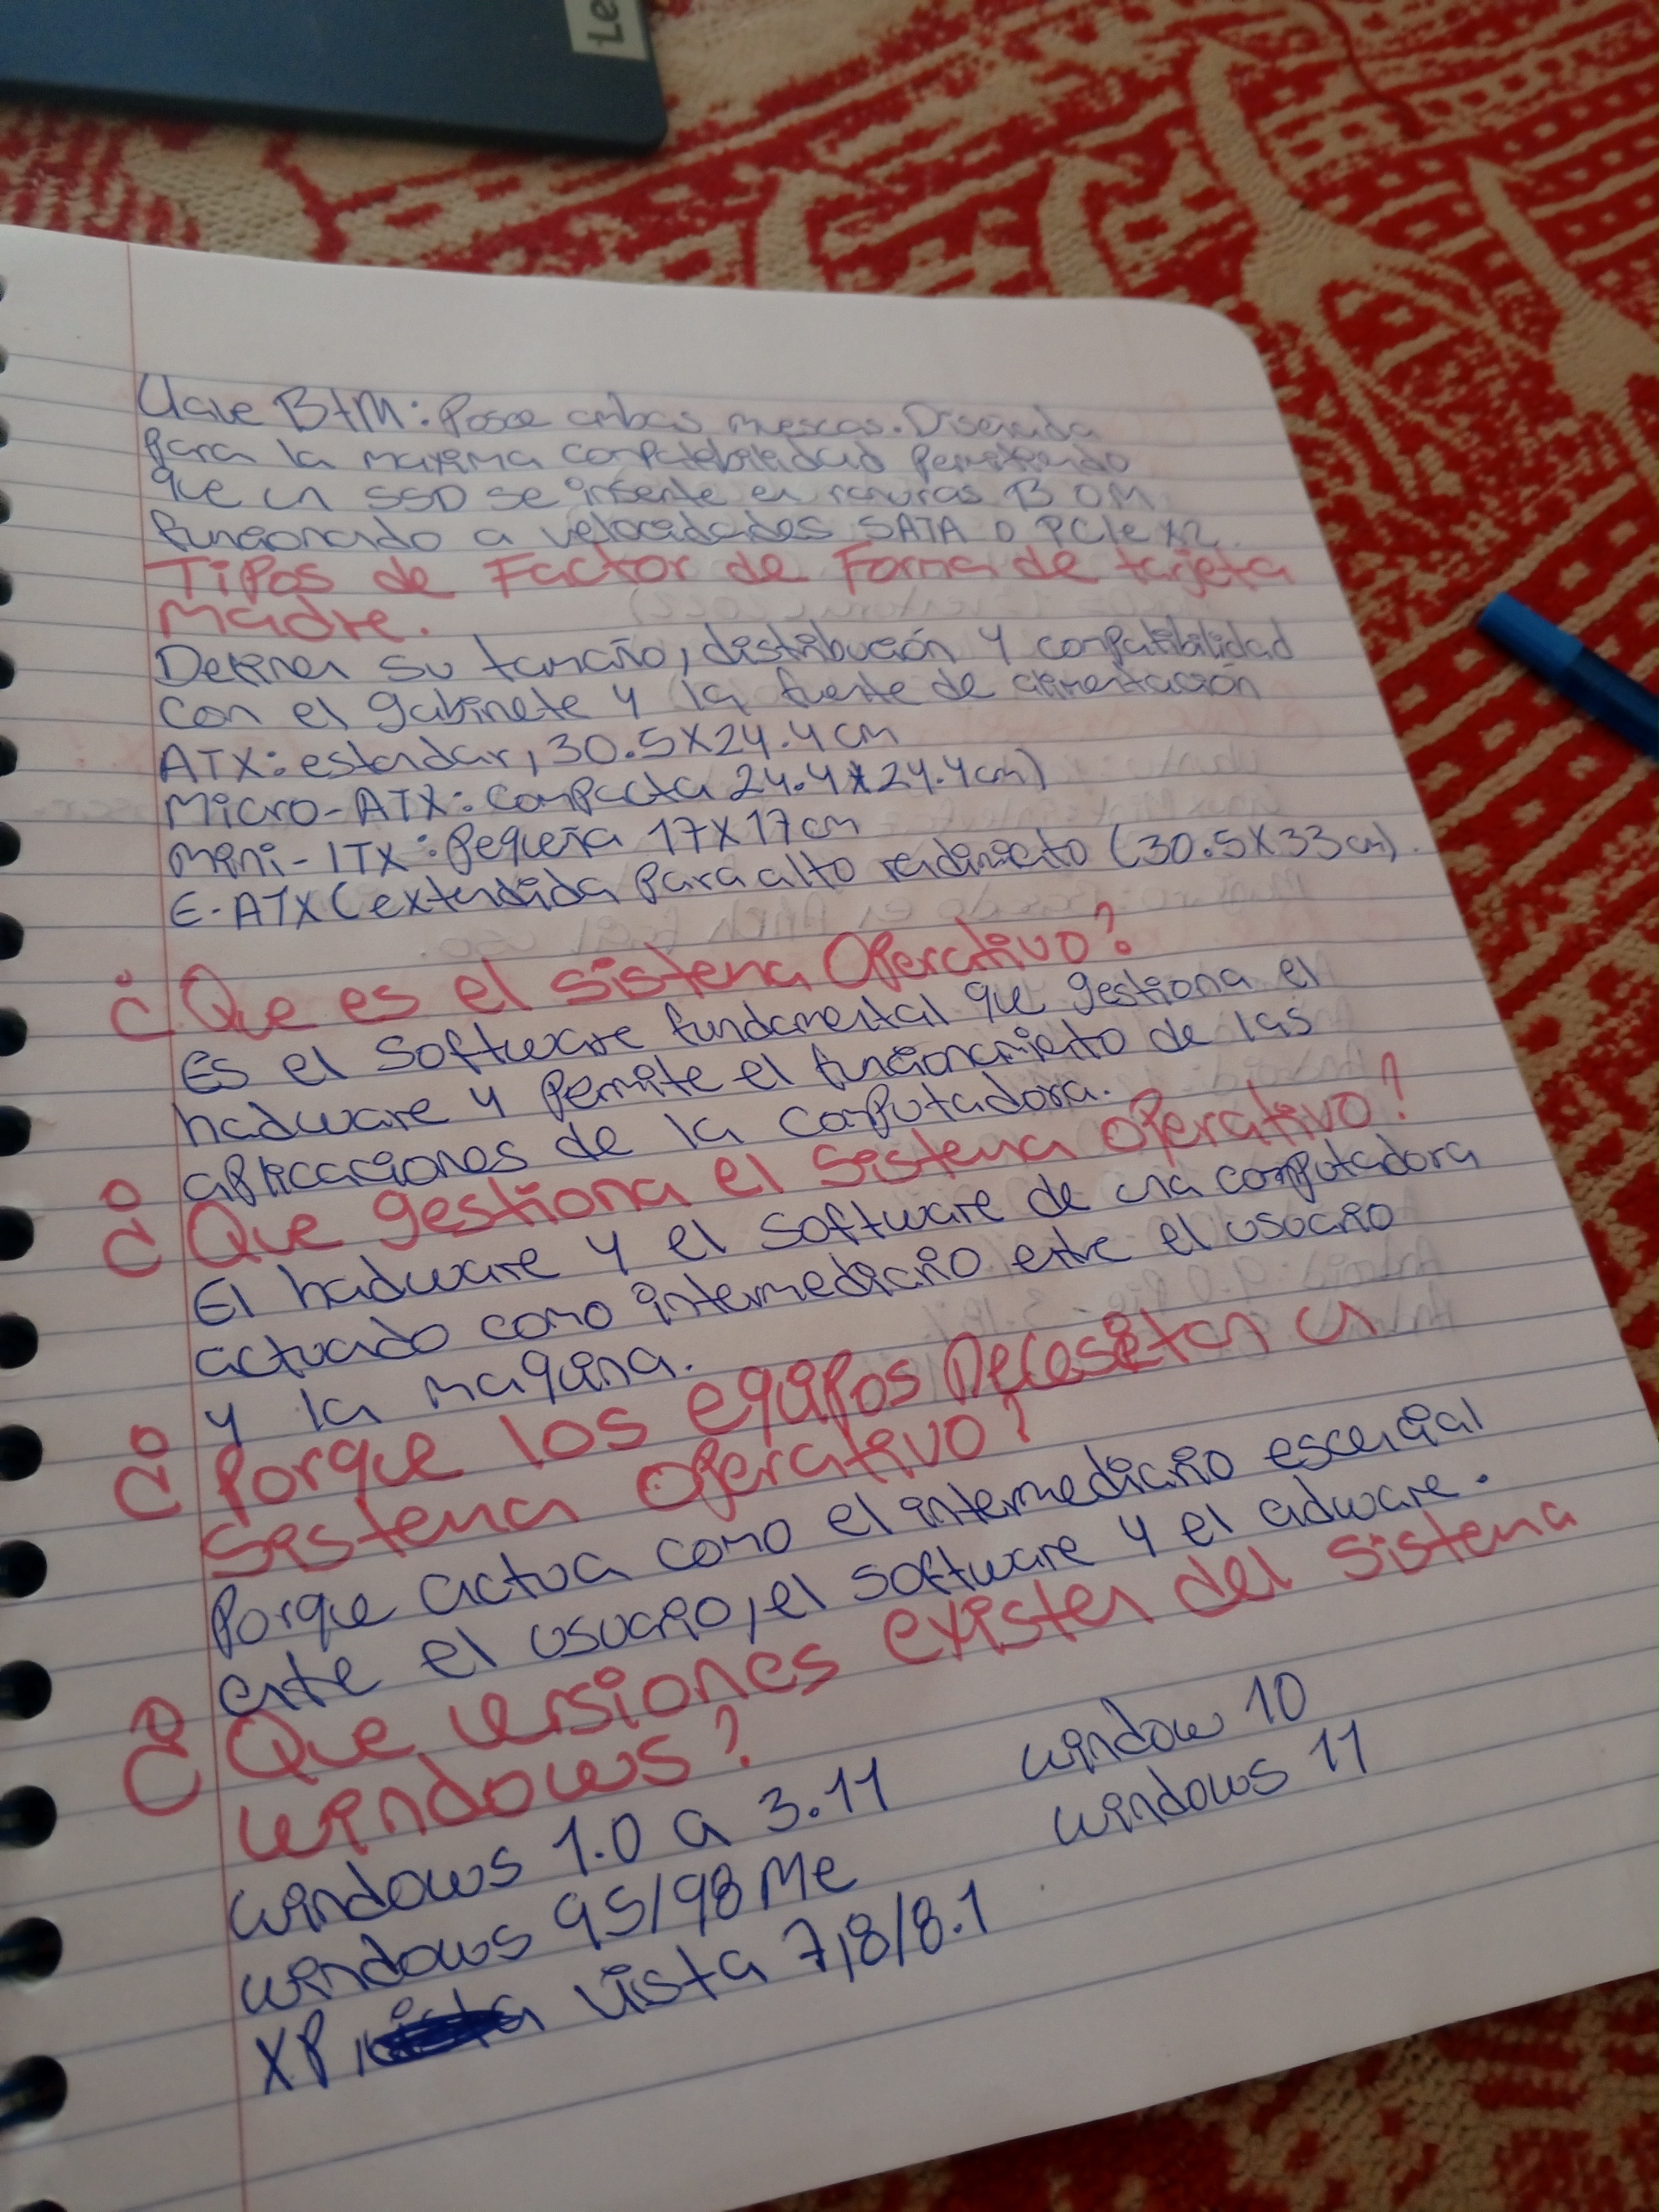 Le
Clave B+M: Posee ambas muescas. Diseñada
para la maxima compatibilidad permitiendo
que un SSD se inserte en ranuras B O M
funcionado a velocidades SATA o PCIe x2.
Tipos de Factor de Forma de tarjeta
madre.
Definen su tamaño, distribución y compatibilidad
con el gabinete y la fuente de alimentación
ATX: estandar, 30.5X24.4 cm
Micro-ATX: compacta 24.4x24.4cm)
Mini-ITX: Pequeña 17X17cm
E-ATX (extendida para alto rendimiento (30.5X33cm).
¿Que es el sistema Operativo?
Es el Software fundamental que gestiona el
hadware y permite el funcionamiento de las
aplicaciones de la computadora.
¿Que gestiona el sistema operativo?
El hadware y el software de una computadora
actuado como intermediario entre el usuario
y la maquina.
¿Porque los equipos necesitan un
sistema operativo?
Porque actua como el intermediario esencial
ente el usuario, el software y el adware.
¿Que versiones existen del sistema
windows?
windows 1.0 a 3.11
window 10
windows 95/98 Me
windows 11
XP vista 7,8/8.1